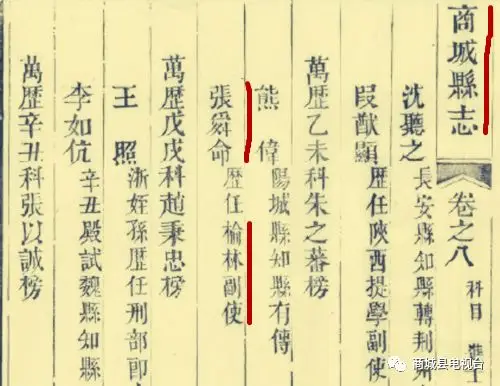 商城縣志 卷之八 科目
沈聽之 長安縣知縣轉荆
段猷顯 歷任陝西提學副使
萬歷乙未科朱之蕃榜
熊偉 陽城縣知縣有傳
張舜命 歷任榆林副使
萬歷戊戌科趙秉忠榜
王照 浙姪孫歷任刑部郎
李如伉 辛丑殿試魏縣知縣
萬歷辛丑科張以誠榜
商城县电视台